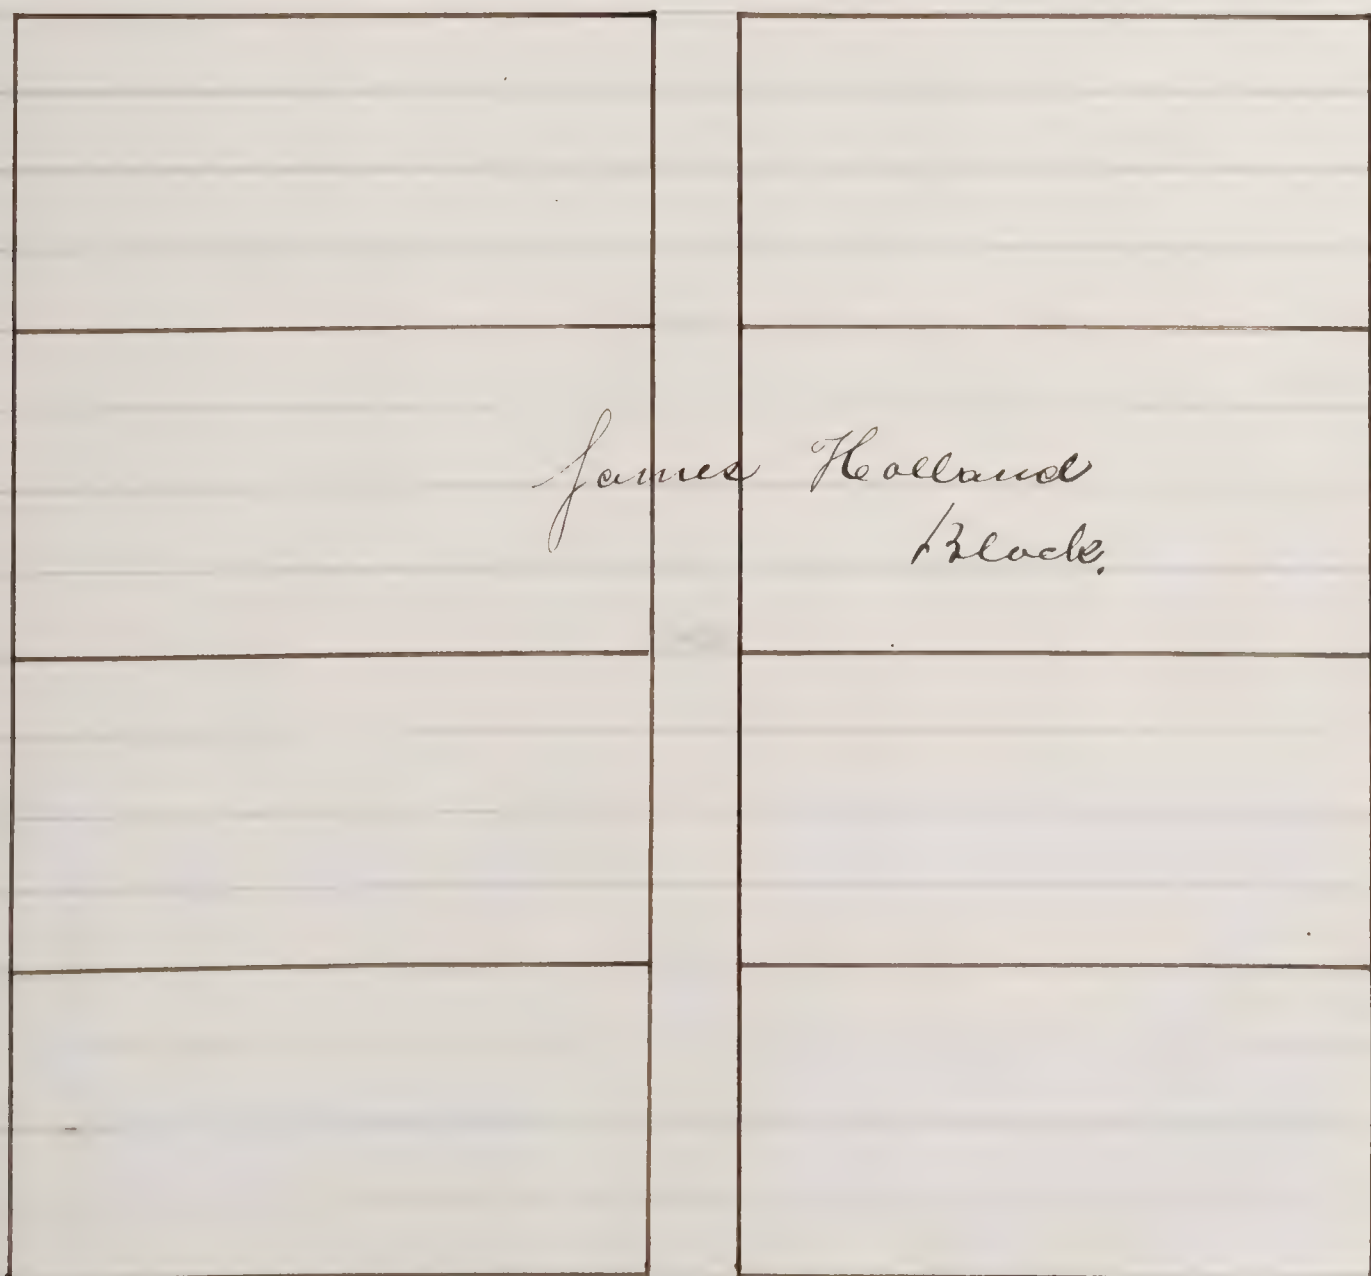 James Holland
Block.